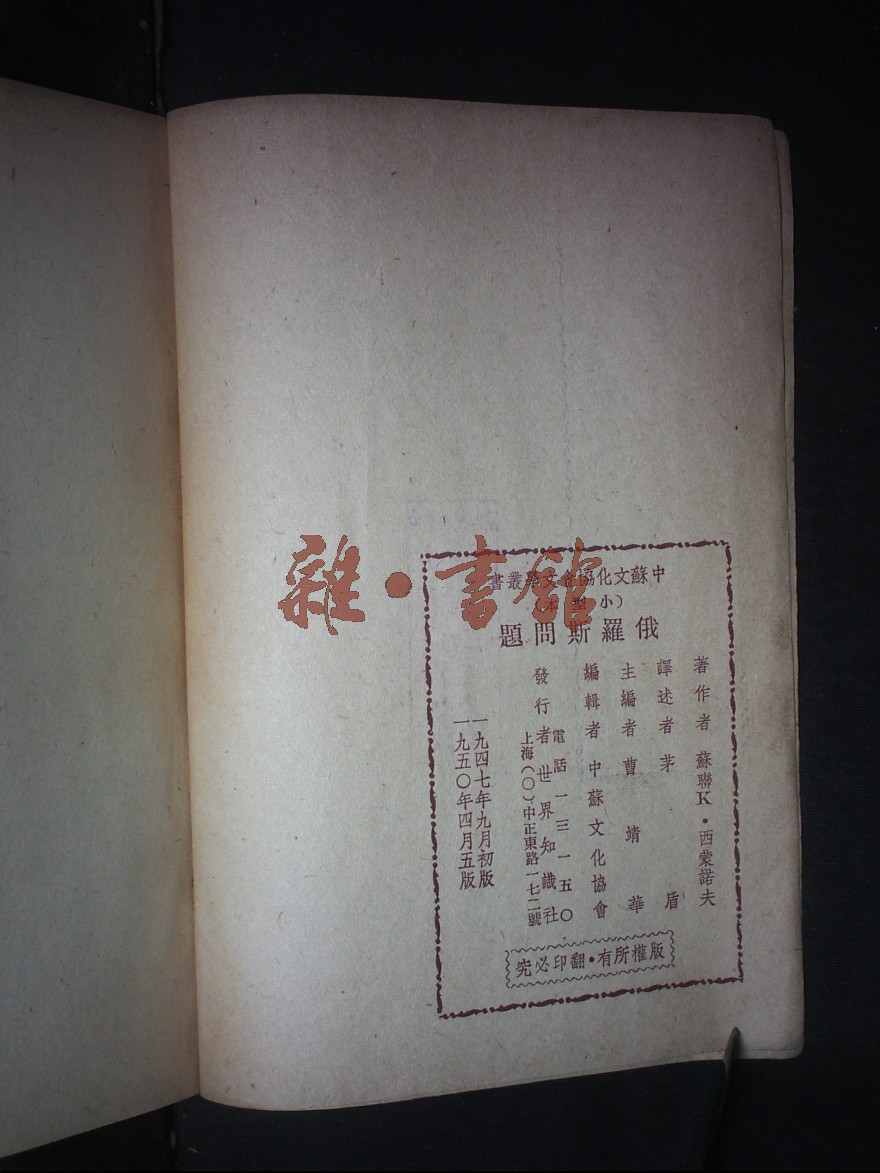 雜·書館
中蘇文化協會文學叢書
（小型本）
俄羅斯問題
著作者 蘇聯K·西蒙諾夫
譯述者 茅盾
主編者 曹靖華
編輯者 中蘇文化協會
發行者 世界知識社
電話一三一五〇
上海（〇）中正東路一七二號
一九四七年九月初版
一九五〇年四月五版
版權所有·翻印必究